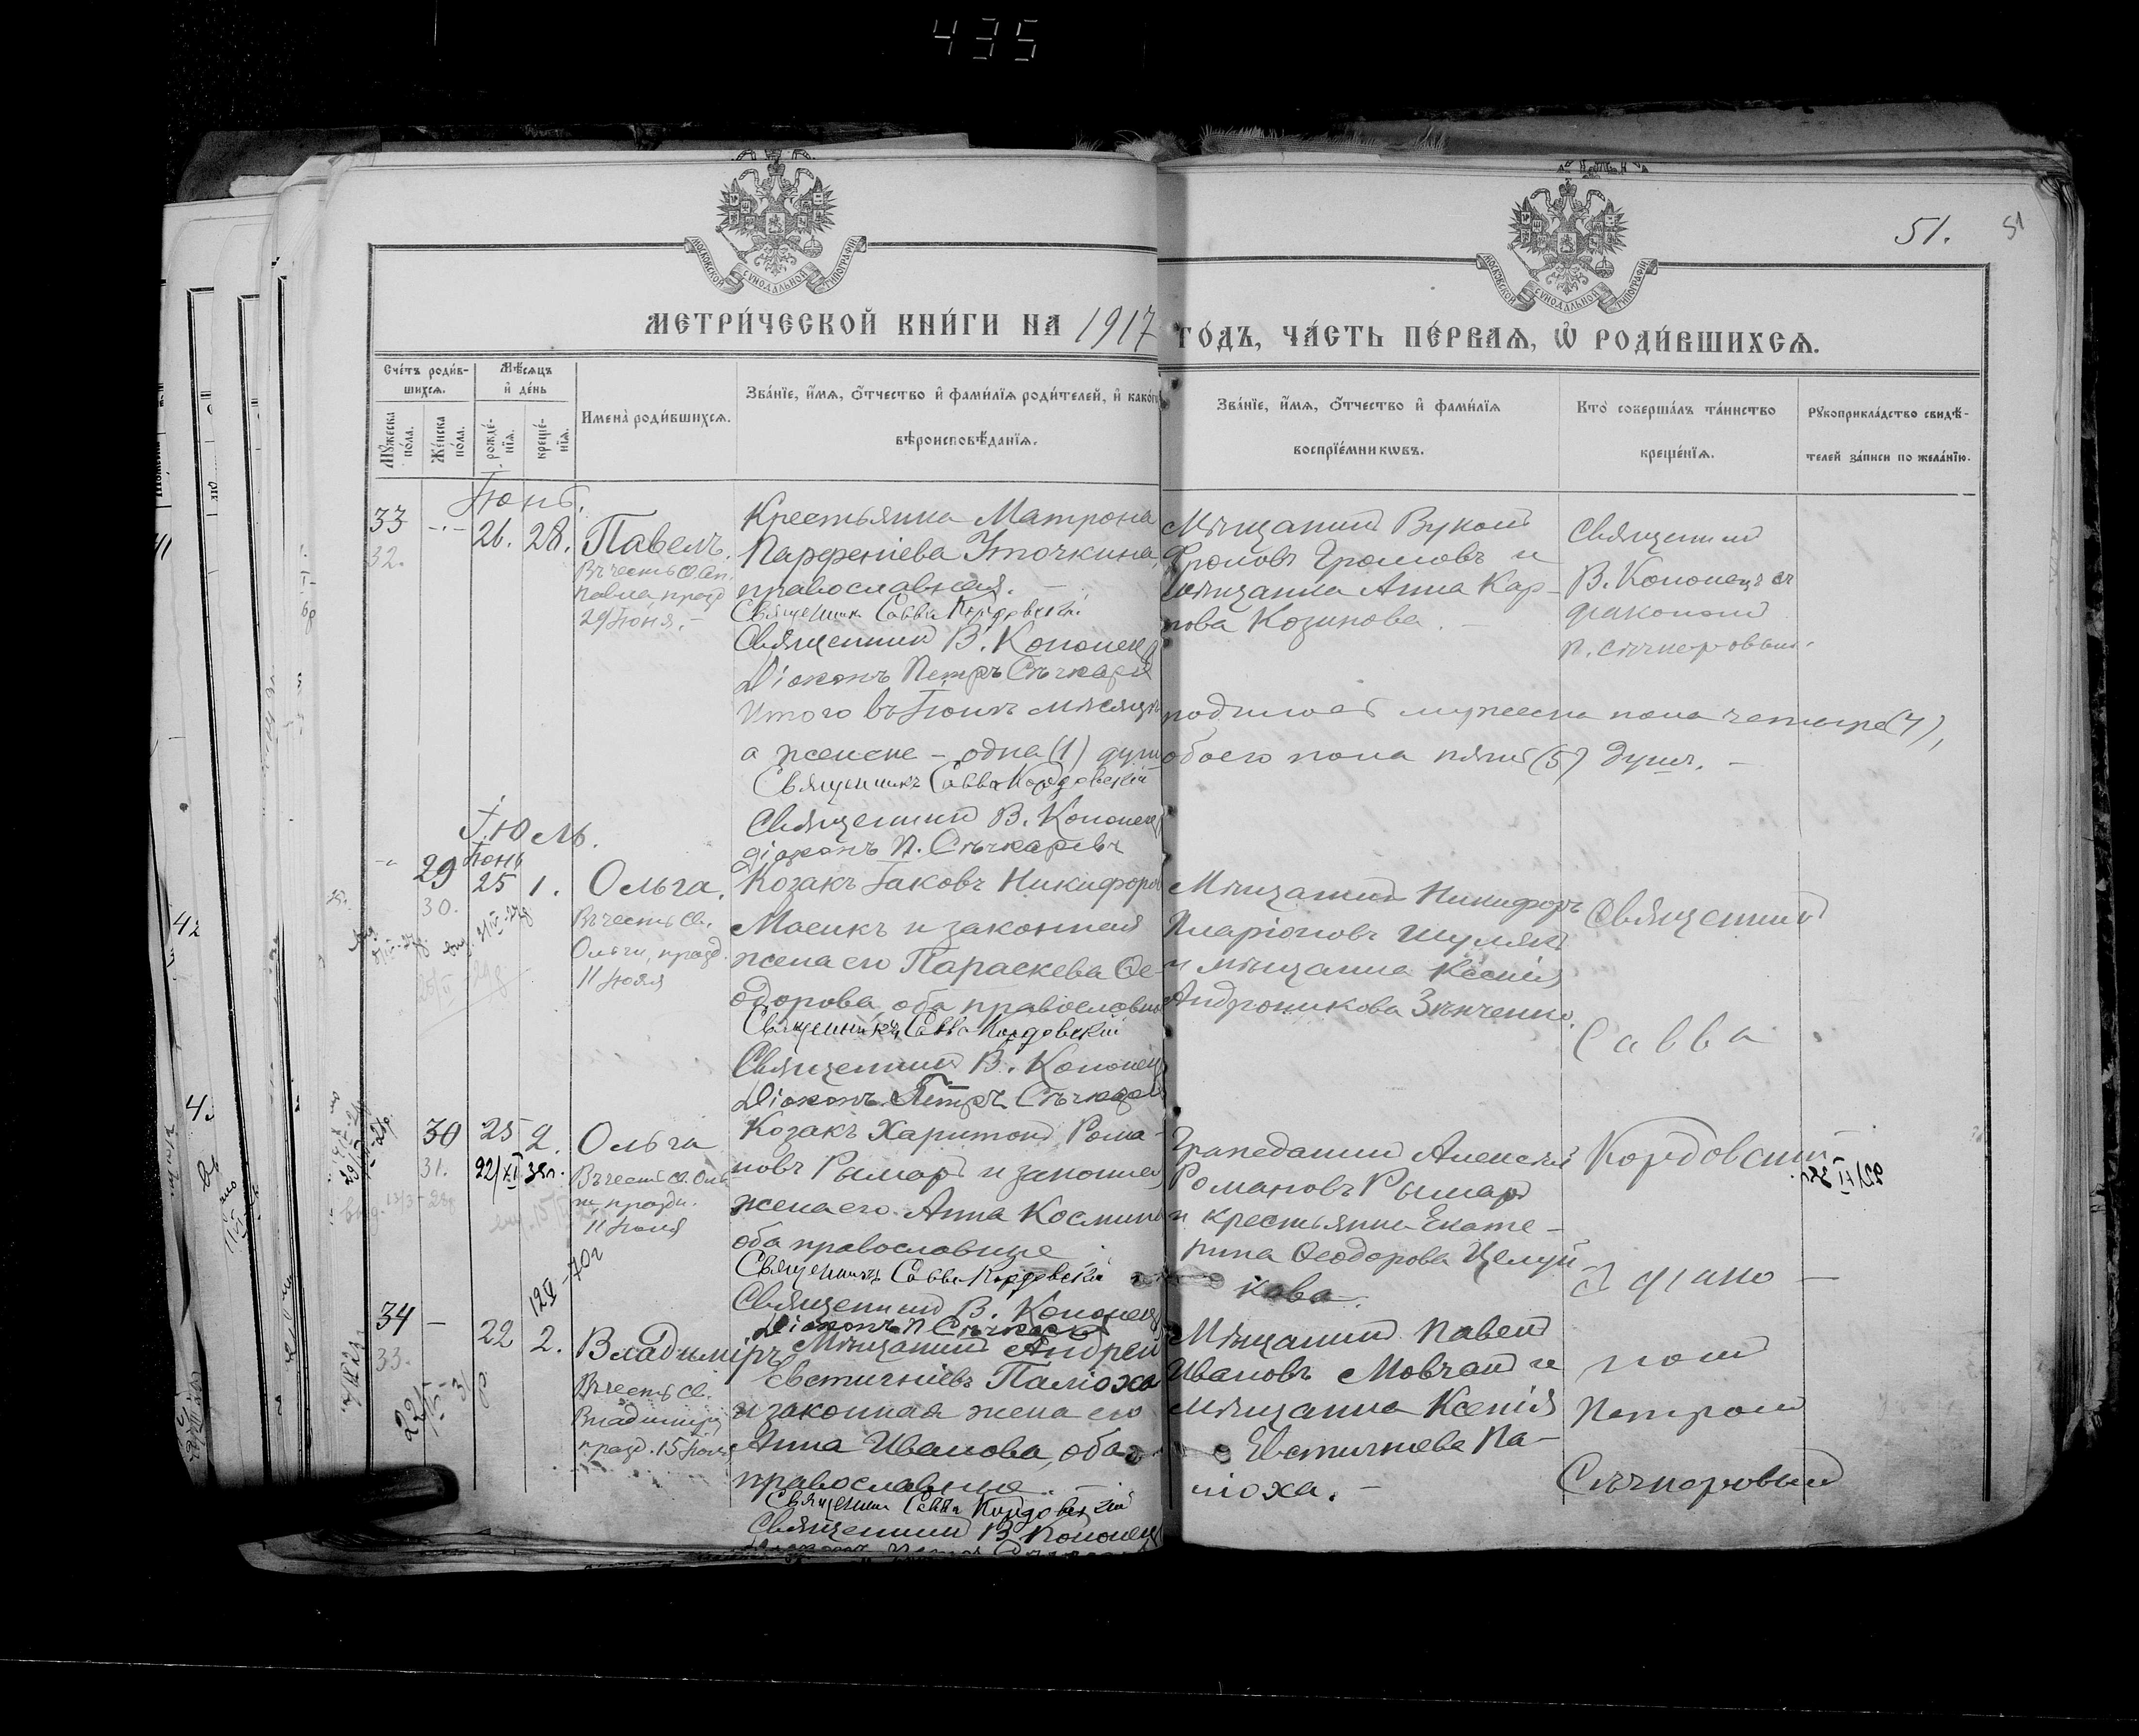 435
51. 51
МОСКОВСКОЙ СѴНОДАЛЬНОЙ ТИПОГРАФІИ
МОСКОВСКОЙ СѴНОДАЛЬНОЙ ТИПОГРАФІИ
МЕТРИ́ЧЕСКОЙ КНИ́ГИ НА 1917 ГО́ДЪ, ЧА́СТЬ ПЕ́РВАѦ, Ѽ РОДИ́ВШИХСѦ.
Сче́тъ роди́в-
шихся.
Мѣ́сяцъ
и҆ де́нь
Мꙋ́жеска
по́ла.
Же́нска
по́ла.
рожде́-
нїя.
креще́-
нїя.
Имена̀ роди́вшихся.
Зва́нїе, и҆́мя, ѻ҆́тчество и҆ фами́лїя роди́телей, и҆ како́гѡ
вѣроисповѣ́данїя.
Зва́нїе, и҆́мя, ѻ҆́тчество и҆ фами́лїя
воспрїе́мникѡвъ.
Кто̀ соверша́лъ та́инство
креще́нїя.
Рꙋкоприкла́дство свидѣ́-
телей за́писи по жела́нїю.
Іюнь.
33 -·- 26. 28. Павелъ.
32.
Въ честь св. Ап.
Павла празд.
29 Іюня.-
Крестьянка Матрона
Парфеніева Уточкина,
православная. -
Священникъ Савва Кордовскій
Священник В. Кононец
Діаконъ Петръ Сѣчкарев
Мѣщанин Вукол
Фролов Громовъ и
мѣщанка Анна Кар-
пова Козинова. -
Священник
В. Кононец съ
діаконом
П. Сѣчкаровым.
Итого въ Іюнѣ мѣсяцѣ родилось мужеска пола четыре (4),
а женска - одна (1) душ обоего пола пять (5) душ. -
Священникъ Савва Кордовскій
Священник В. Кононец
діаконъ П. Сѣчкаревъ
Іюль.
Іюнь
-" 29 25 1. Ольга.
30.
Въ честь св.
Ольги, празд.
11 Іюля
Козакъ Іаковъ Никифоро
Мосикъ и законная
жена его Параскева Ѳе-
одорова, оба православные
Священникъ Савва Кордовскій
Священник В. Кононец
Діаконъ Петръ Сѣчкарев
Мѣщанин Никифоръ
Иларіоновъ Шуляк
и мѣщанка Ксенія
Андроникова Зѣнченко.
Священник
Савва
30 25 2. Ольга
31. 22/XI 38г.
Въ честь св. Оль
ги празд.
11 Іюля
Козакъ Харитон Рома-
новъ Рымарь и законная
жена его Анна Космина
оба православные
Священникъ Савва Кордовскій
Священник В. Кононец
Діаконъ П. Сѣчкарев
Гражданин Алексей
Романовъ Рымарь
и крестьянка Екате-
рина Ѳеодорова Целуй
кова.
Кордовский
с діако-
22/XI 38г.
12V-70г
34 - 22 2. Владимиръ
33.
Въ честь св.
Владимира
празд. 15 Іюля
Мѣщанин Андрей
Евстигніевъ Паліоха
и законная жена его
Анна Иванова, оба
православные. -
Священник Савва Кордовскій
Священник В. Кононец
Мѣщанин Павел
Ивановъ Мовчан и
мѣщанка Ксенія
Евстигнеева Па-
ліоха. -
ном
Петром
Сѣчкаровым